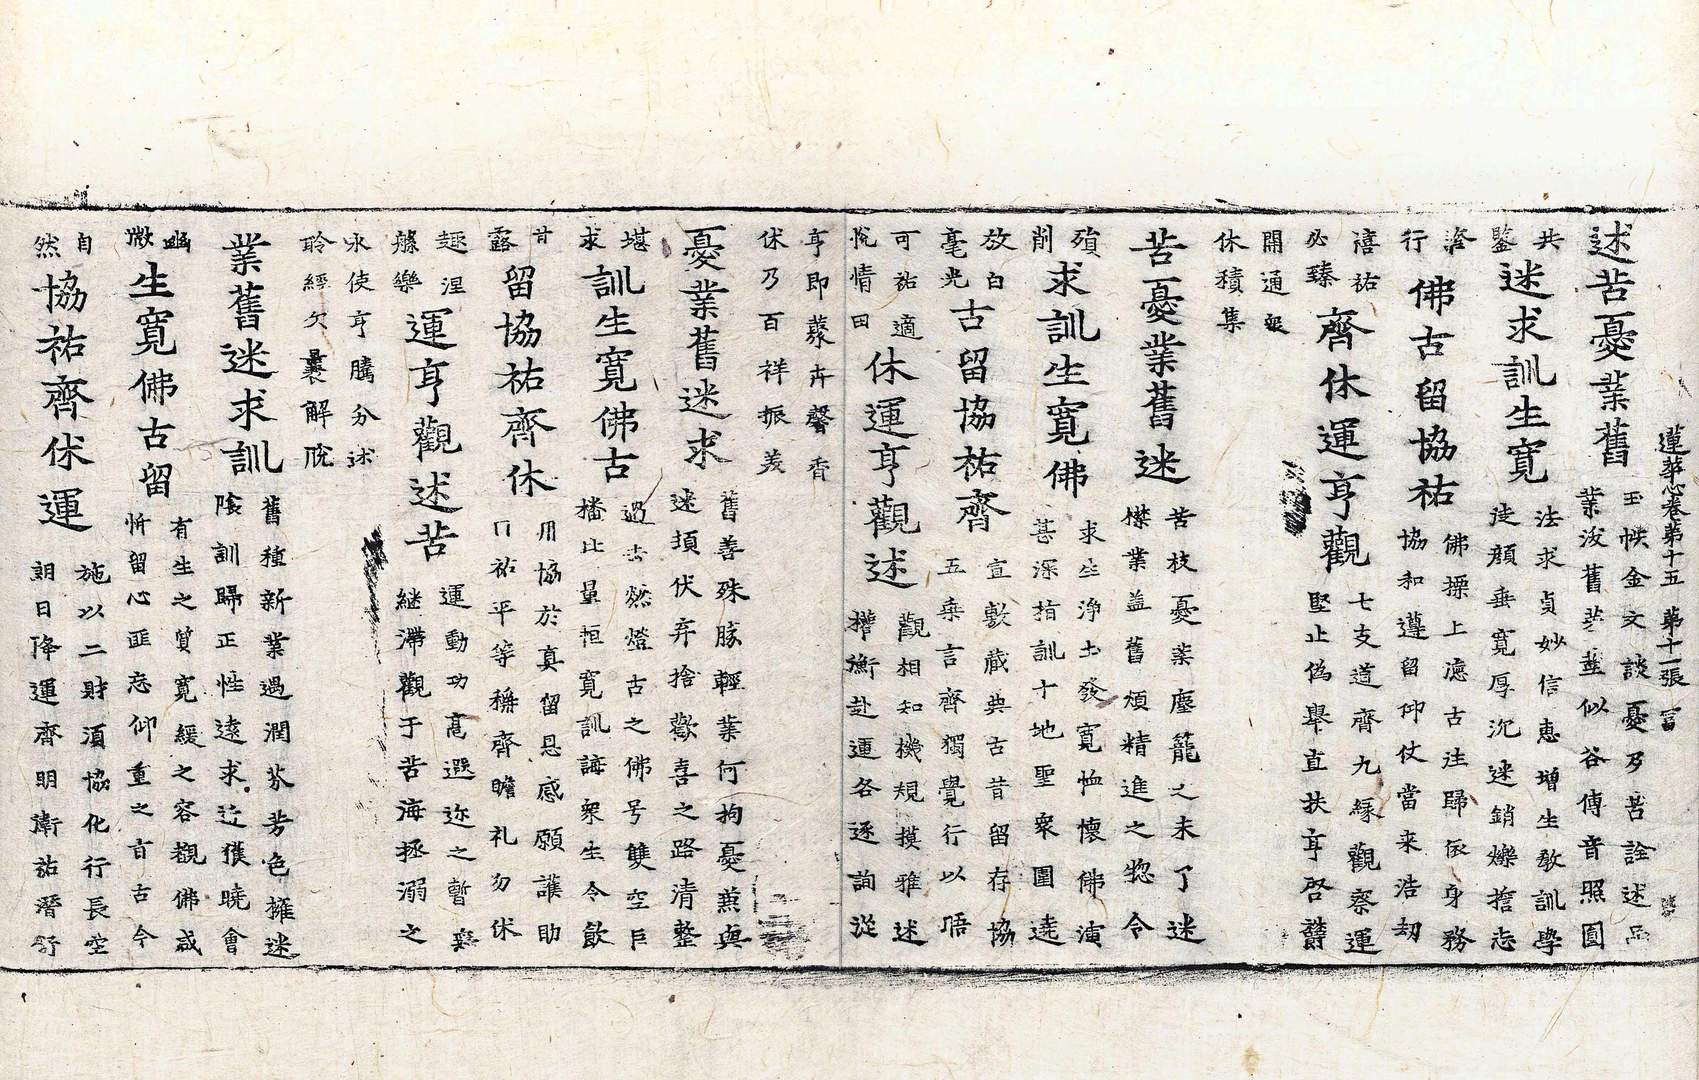 蓮華心卷第十五 第十一張 富
述苦憂業舊
玉帙金文談憂乃苦詮述品
業浚舊並似谷傳音照圓
共
鑒
迷求訓生寬
法求貞妙信惠增生教訓學
徒顏垂寬厚沉迷銷爍擔志
行
佛古留協祐
佛標上德古注歸依身務
協和遵留仰仗當来浩劫
禧祐
必臻
齊休運亨觀
七支道齊九緣觀察運
堅止偽舉直扶亨啓欝
開通報
休積集
苦憂業舊迷
苦枝憂業塵籠之未了迷
業益舊煩精進之惣令
殞
削
求訓生寬佛
求生淨土發寬恤懷佛演
甚深指訓十地聖衆圍遶
放白
毫光
古留協祐齊
宣敷藏典古昔留存協
五乘言齊獨覺行以晤
可祐適
悅情田
休運亨觀述
觀相知機規摸雅述
權衡赴運各逐詢從
亨即蒙卉馨香
休乃百祥振美
憂業舊迷求
舊善殊勝輕業何拘憂兼與
迷煩伏弃捨歡喜之路清整
堪
求
訓生寬佛古
過去然燈古之佛号雙空巨
播比量恒寬訓誨衆生令飲
甘
露
留協祐齊休
用協於真留恩感願誰助
祐平等稱齊瞻礼勿休
趣涅
槃樂
運亨觀述苦
運動功高遐迩之暫棄
継滯觀于苦海拯溺之
永使亨騰分述
聆經欠曩解脫
業舊迷求訓
舊種新業過潤芬芳色擁迷
陰訓歸正性遠求迄獲曉會
幽
微
生寬佛古留
有生之質寬緩之容覩佛咸
忻留心匪忘仰重之言古今
自
然
協祐齊休運
施以二財須協化行長空
朗日降運齊明衛祐潛舒